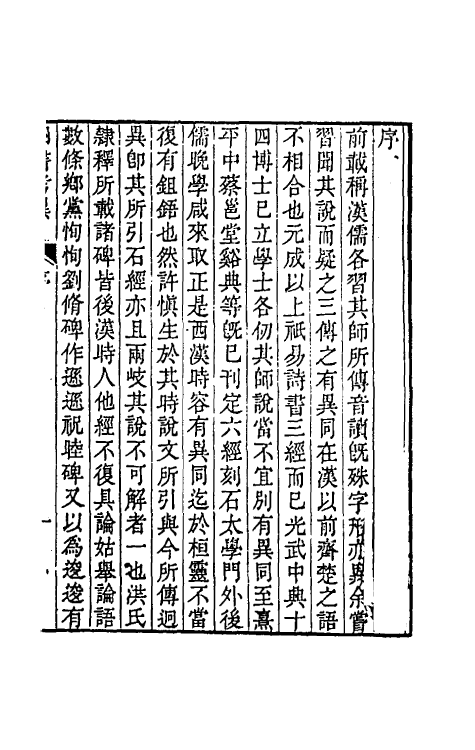 序
前載稱漢儒各習其師所傳音讀旣殊字形亦異余嘗
習聞其說而疑之三傳之有異同在漢以前齊楚之語
不相合也元成以上祇易詩書三經而已光武中興十
四博士已立學士各仞其師說當不宜別有異同至熹
平中蔡邕堂谿典等旣已刊定六經刻石太學門外後
儒晚學咸來取正是西漢時容有異同迄於桓靈不當
復有鉏鋙也然許愼生於其時說文所引與今所傳迥
異卽其所引石經亦且兩岐其說不可解者一也洪氏
隸釋所載諸碑皆後漢時人他經不復具論姑舉論語
數條鄉黨恂恂劉脩碑作遜遜祝睦碑又以爲逡逡有
序
一